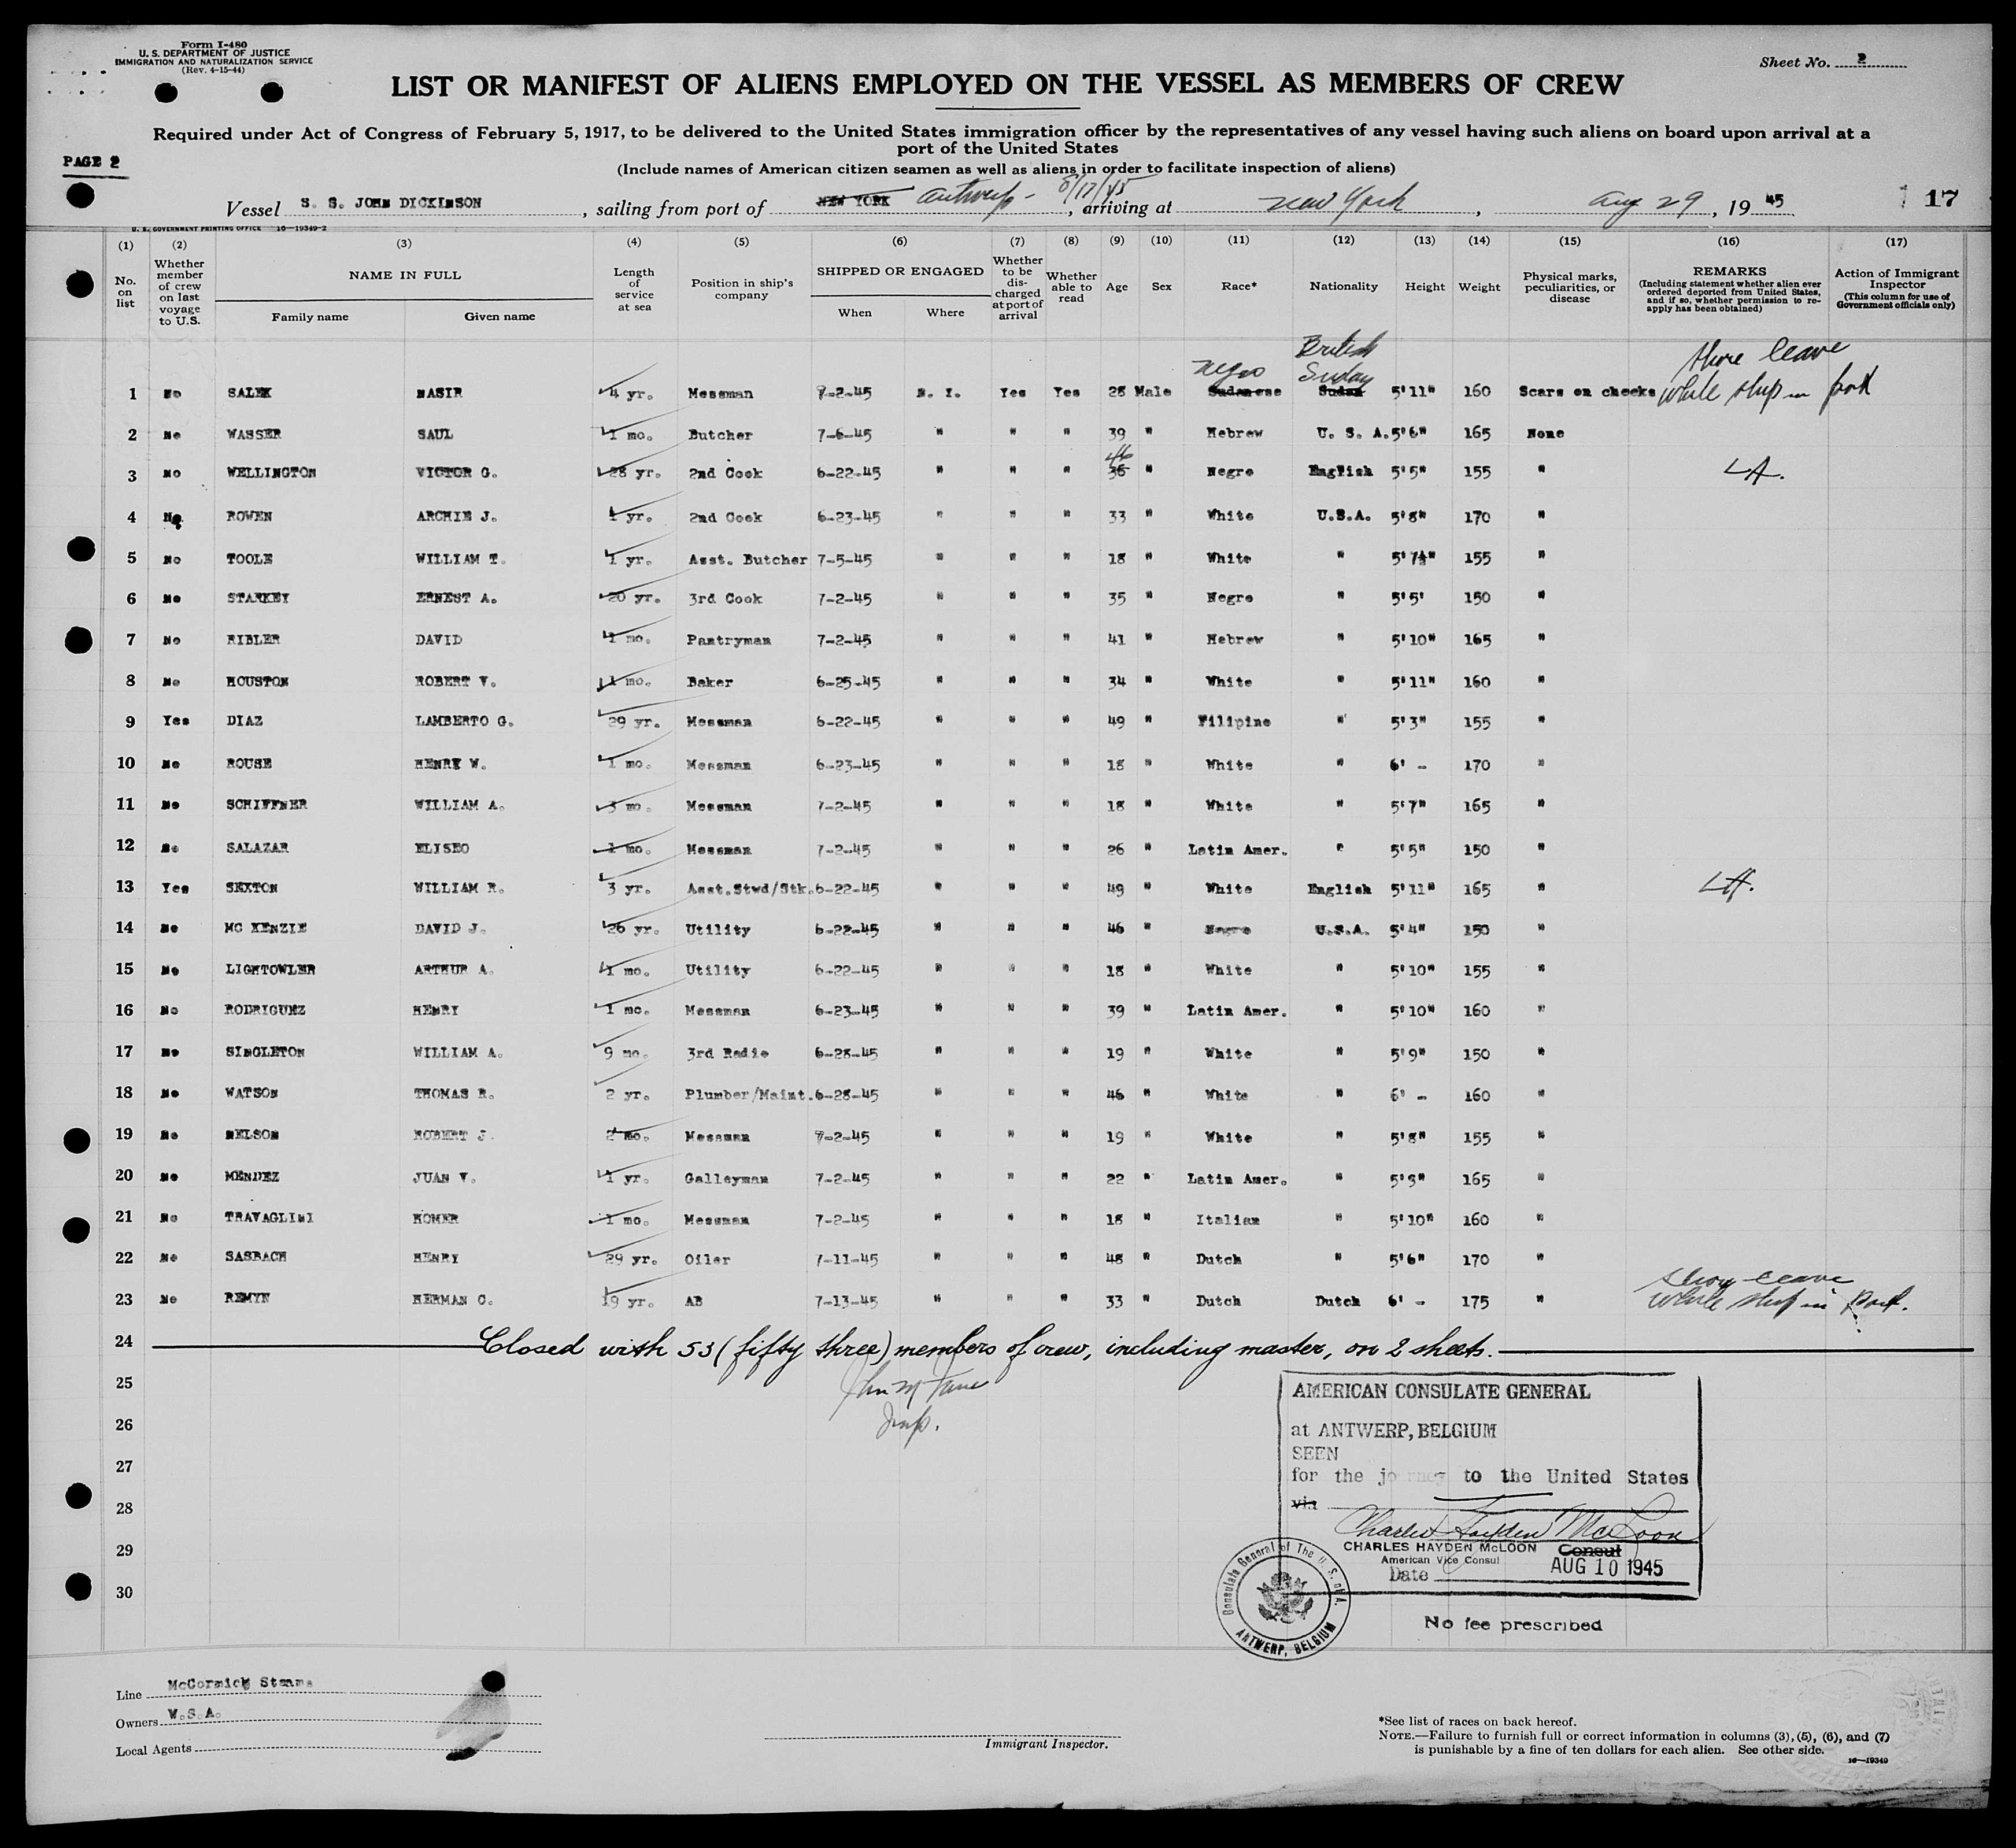 Form I-480
U. S. DEPARTMENT OF JUSTICE
IMMIGRATION AND NATURALIZATION SERVICE
(Rev. 4-15-44)
Sheet No. 2
LIST OR MANIFEST OF ALIENS EMPLOYED ON THE VESSEL AS MEMBERS OF CREW
Required under Act of Congress of February 5, 1917, to be delivered to the United States immigration officer by the representatives of any vessel having such aliens on board upon arrival at a
port of the United States
PAGE 2
(Include names of American citizen seamen as well as aliens in order to facilitate inspection of aliens)
Vessel S. S. JOHN DICKINSON, sailing from port of NEW YORK Antwerp - 8/17/45, arriving at New York, Aug 29, 1945 17
U. S. GOVERNMENT PRINTING OFFICE 16-19349-2
(1) (2) (3) (4) (5) (6) (7) (8) (9) (10) (11) (12) (13) (14) (15) (16) (17)
No. on list Whether member of crew on last voyage to U.S. NAME IN FULL Family name Given name Length of service at sea Position in ship's company SHIPPED OR ENGAGED When Where Whether to be discharged at port of arrival Whether able to read Age Sex Race* Nationality Height Weight Physical marks, peculiarities, or disease REMARKS (Including statement whether alien ever ordered deported from United States, and if so, whether permission to re-apply has been obtained) Action of Immigrant Inspector (This column for use of Government officials only)
Negro British Shore leave
1 No SALEK NASIR 4 yr. Messman 7-2-45 N. Y. Yes Yes 28 Male Sudanese Sudan 5'11" 160 Scars on cheeks while ship in port
2 No WASSER SAUL 1 mo. Butcher 7-6-45 " " " 39 " Hebrew U. S. A. 5'6" 165 None
3 No WELLINGTON VICTOR G. 28 yr. 2nd Cook 6-22-45 " " " 36 46 " Negro English 5'5" 155 "
4 No ROWEN ARCHIE J. 1 yr. 2nd Cook 6-23-45 " " " 33 " White U.S.A. 5'8" 170 "
5 No TOOLE WILLIAM T. 1 yr. Asst. Butcher 7-5-45 " " " 18 " White " 5'7½" 155 "
6 No STARKEY ERNEST A. 20 yr. 3rd Cook 7-2-45 " " " 35 " Negro " 5'5' 150 "
7 No RIBLER DAVID 1 mo. Pantryman 7-2-45 " " " 41 " Hebrew " 5'10" 165 "
8 No HOUSTON ROBERT V. 1 mo. Baker 6-25-45 " " " 34 " White " 5'11" 160 "
9 Yes DIAZ LAMBERTO G. 29 yr. Messman 6-22-45 " " " 49 " Filipino " 5'3" 155 "
10 No ROUSE HENRY W. 1 mo. Messman 6-23-45 " " " 18 " White " 6' - 170 "
11 No SCHIFFNER WILLIAM A. 3 mo. Messman 7-2-45 " " " 18 " White " 5'7" 165 "
12 No SALAZAR ELISEO 1 mo. Messman 7-2-45 " " " 26 " Latin Amer. " 5'5" 150 "
13 Yes SEXTON WILLIAM R. 3 yr. Asst.Stwd/Stk. 6-22-45 " " " 49 " White English 5'11" 165 "
14 No MC KENZIE DAVID J. 26 yr. Utility 6-22-45 " " " 46 " Negro U.S.A. 5'4" 150 "
15 No LIGHTOWLER ARTHUR A. 1 mo. Utility 6-22-45 " " " 18 " White " 5'10" 155 "
16 No RODRIGUEZ HENRY 1 mo. Messman 6-23-45 " " " 39 " Latin Amer. " 5'10" 160 "
17 No SINGLETON WILLIAM A. 9 mo. 3rd Radio 6-28-45 " " " 19 " White " 5'9" 150 "
18 No WATSON THOMAS R. 2 yr. Plumber/Maint. 6-28-45 " " " 46 " White " 6' - 160 "
19 No NELSON ROBERT J. 2 mo. Messman 7-2-45 " " " 19 " White " 5'8" 155 "
20 No MENDEZ JUAN V. 1 yr. Galleyman 7-2-45 " " " 22 " Latin Amer. " 5'9" 165 "
21 No TRAVAGLINI HOMER 1 mo. Messman 7-2-45 " " " 18 " Italian " 5'10" 160 "
22 No SASBACH HENRY 29 yr. Oiler 7-11-45 " " " 48 " Dutch " 5'6" 170 "
Shore leave
23 No REMYN HERMAN C. 19 yr. AB 7-13-45 " " " 33 " Dutch Dutch 6' - 175 " while ship in port.
24 Closed with 53 (fifty three) members of crew, including master, on 2 sheets.
25
26 Insp.
27
28
29
30
AMERICAN CONSULATE GENERAL
at ANTWERP, BELGIUM
SEEN
for the journey to the United States
via
Charles Hayden McLoon
CHARLES HAYDEN McLOON Consul
American Vice Consul
Date AUG 10 1945
Consulate General of The U. S. of A. ANTWERP, BELGIUM
No fee prescribed
Line McCormick Steams
Owners W.S.A.
Local Agents
Immigrant Inspector.
*See list of races on back hereof.
NOTE.—Failure to furnish full or correct information in columns (3), (5), (6), and (7)
is punishable by a fine of ten dollars for each alien. See other side.
16-19349